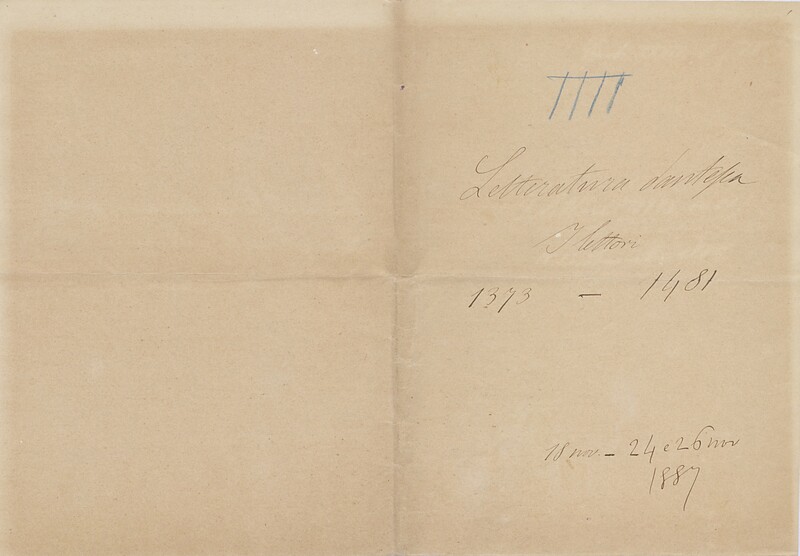 IIII
Letteratura dantesca
I lettori
1373 — 1481
18 nov. — 24 e 26 nov
1887